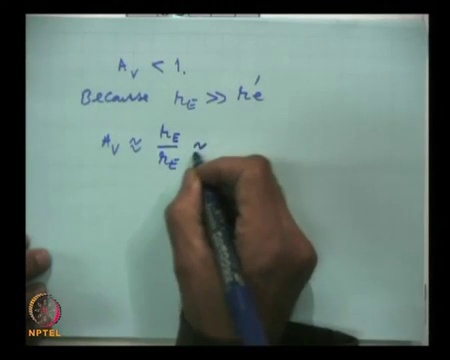 A_V < 1.
Because r_E >> r'e
A_V ≈ r_E / r_E ≈
NPTEL